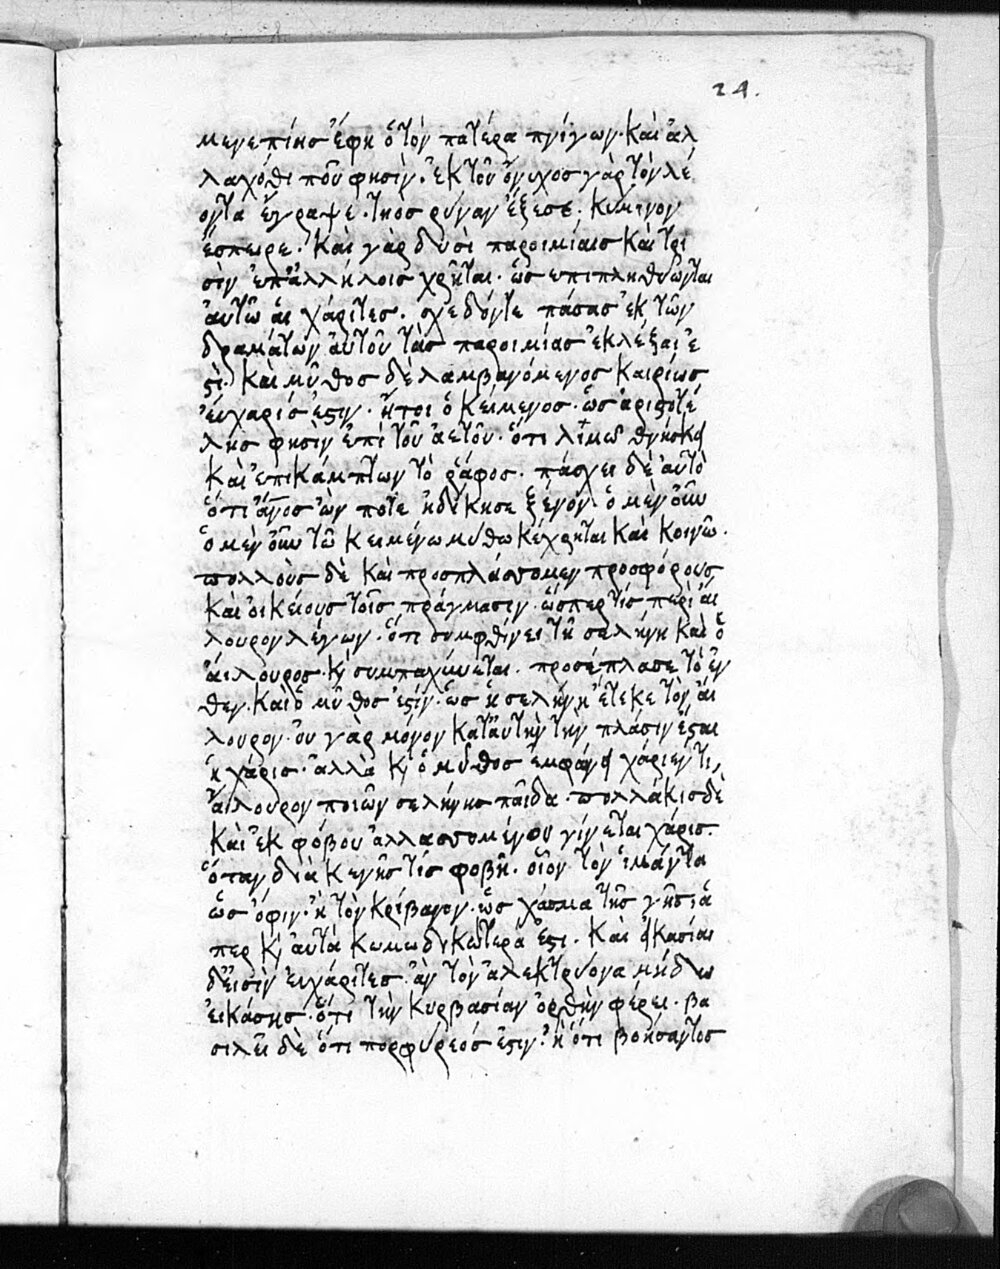 24.
μεγεπίησ ἔφη ὁ τὸν πατέρα πνίγων· καὶ ἀλ
λαχόθι που φησὶν· ἐκ τοῦ ὄνυχοσ γὰρ τὸν λέ
οντα ἔγραψε· τηοσ ρύναν ἔξεσε· κύμινον
ἔσπειρε· καὶ γὰρ δυσὶ παροιμίαισ καὶ τρι
σὶν ἐπαλλήλοισ χρῆται· ὡσ επιπληθύωνται
ἀυτῶ αι χάριτεσ· σχεδόντε πάσασ ἐκ τῶν
δραμάτων ἀυτοῦ τὰσ παροιμίασ ἐκλέξαι ἐ
στι· καὶ μῦθοσ δὲ λαμβανόμενοσ καιρίωσ
ἐύχαρίσ ἐστιν· ἤτοι ὁ κείμενοσ· ὡσ ἀριστοτέ
λησ φησὶν ἐπὶ τοῦ ἀετοῦ· ὅτι λιμῶ θνήσκει
καὶ ἐπικάμπτων τὸ ράφοσ· πάσχει δὲ ἀυτὸ
ὅτι ἄνοσ ὢν ποτε ἠδίκησε ξένον· ὁ μὲν οὖν
ὁ μὲν οὖν τῶ κειμένω μύθω κέχρηται καὶ κοινῶ·
πολλοὺσ δὲ καὶ προσπλάσσομεν προσφόρουσ
καὶ οικείουσ τοῖσ πράγμασιν· ὥσπερ τίσ περὶ αι
λουρου λέγων· ὅτι συμφθίνει τῆ σελήνη καὶ ὁ
ἄιλουροσ· κὶ συμπαχύνεται· προσέπλασε τὸ ἐν
θεν· καὶ ὁ μῦθοσ ἐστὶν· ὡσ ἡ σελήνη ἔτεκε τὸν αι
λουρον· ου γὰρ μόνον κατ' ἀυτὴν τὴν πλάσιν ἔσται
ἡ χάρισ· ἀλλὰ κὶ ὁ μῦθοσ ἐμφαίνει χάριέν τι,
ἄιλουρον ποιῶν σελήνησ παῖδα· πολλάκισ δὲ
καὶ ἐκ φόβου ἀλλασσομένου γίνεται χάρισ·
ὅταν διὰ κενῆσ τίσ φοβῆ· οἷον τὸν ἱμάντα
ὡσ ὄφιν· ἢ τὸν κρίβανον· ὡσ χάσμα τῆσ γῆσ· ἅ
περ κὶ ἀυτὰ κωμωδικώτερά ἐστι· καὶ εικασίαι
δ' ἐισὶν ἐυχάριτεσ· ἂν τὸν ἀλεκτρύονα μήδω
ἐικάσησ· ὅτι τὴν κυρβασίαν ὀρθὴν φέρει· βα
σιλεῖ δὲ ὅτι πορφύρεόσ ἐστιν· ἢ ὅτι βοήσαντοσ